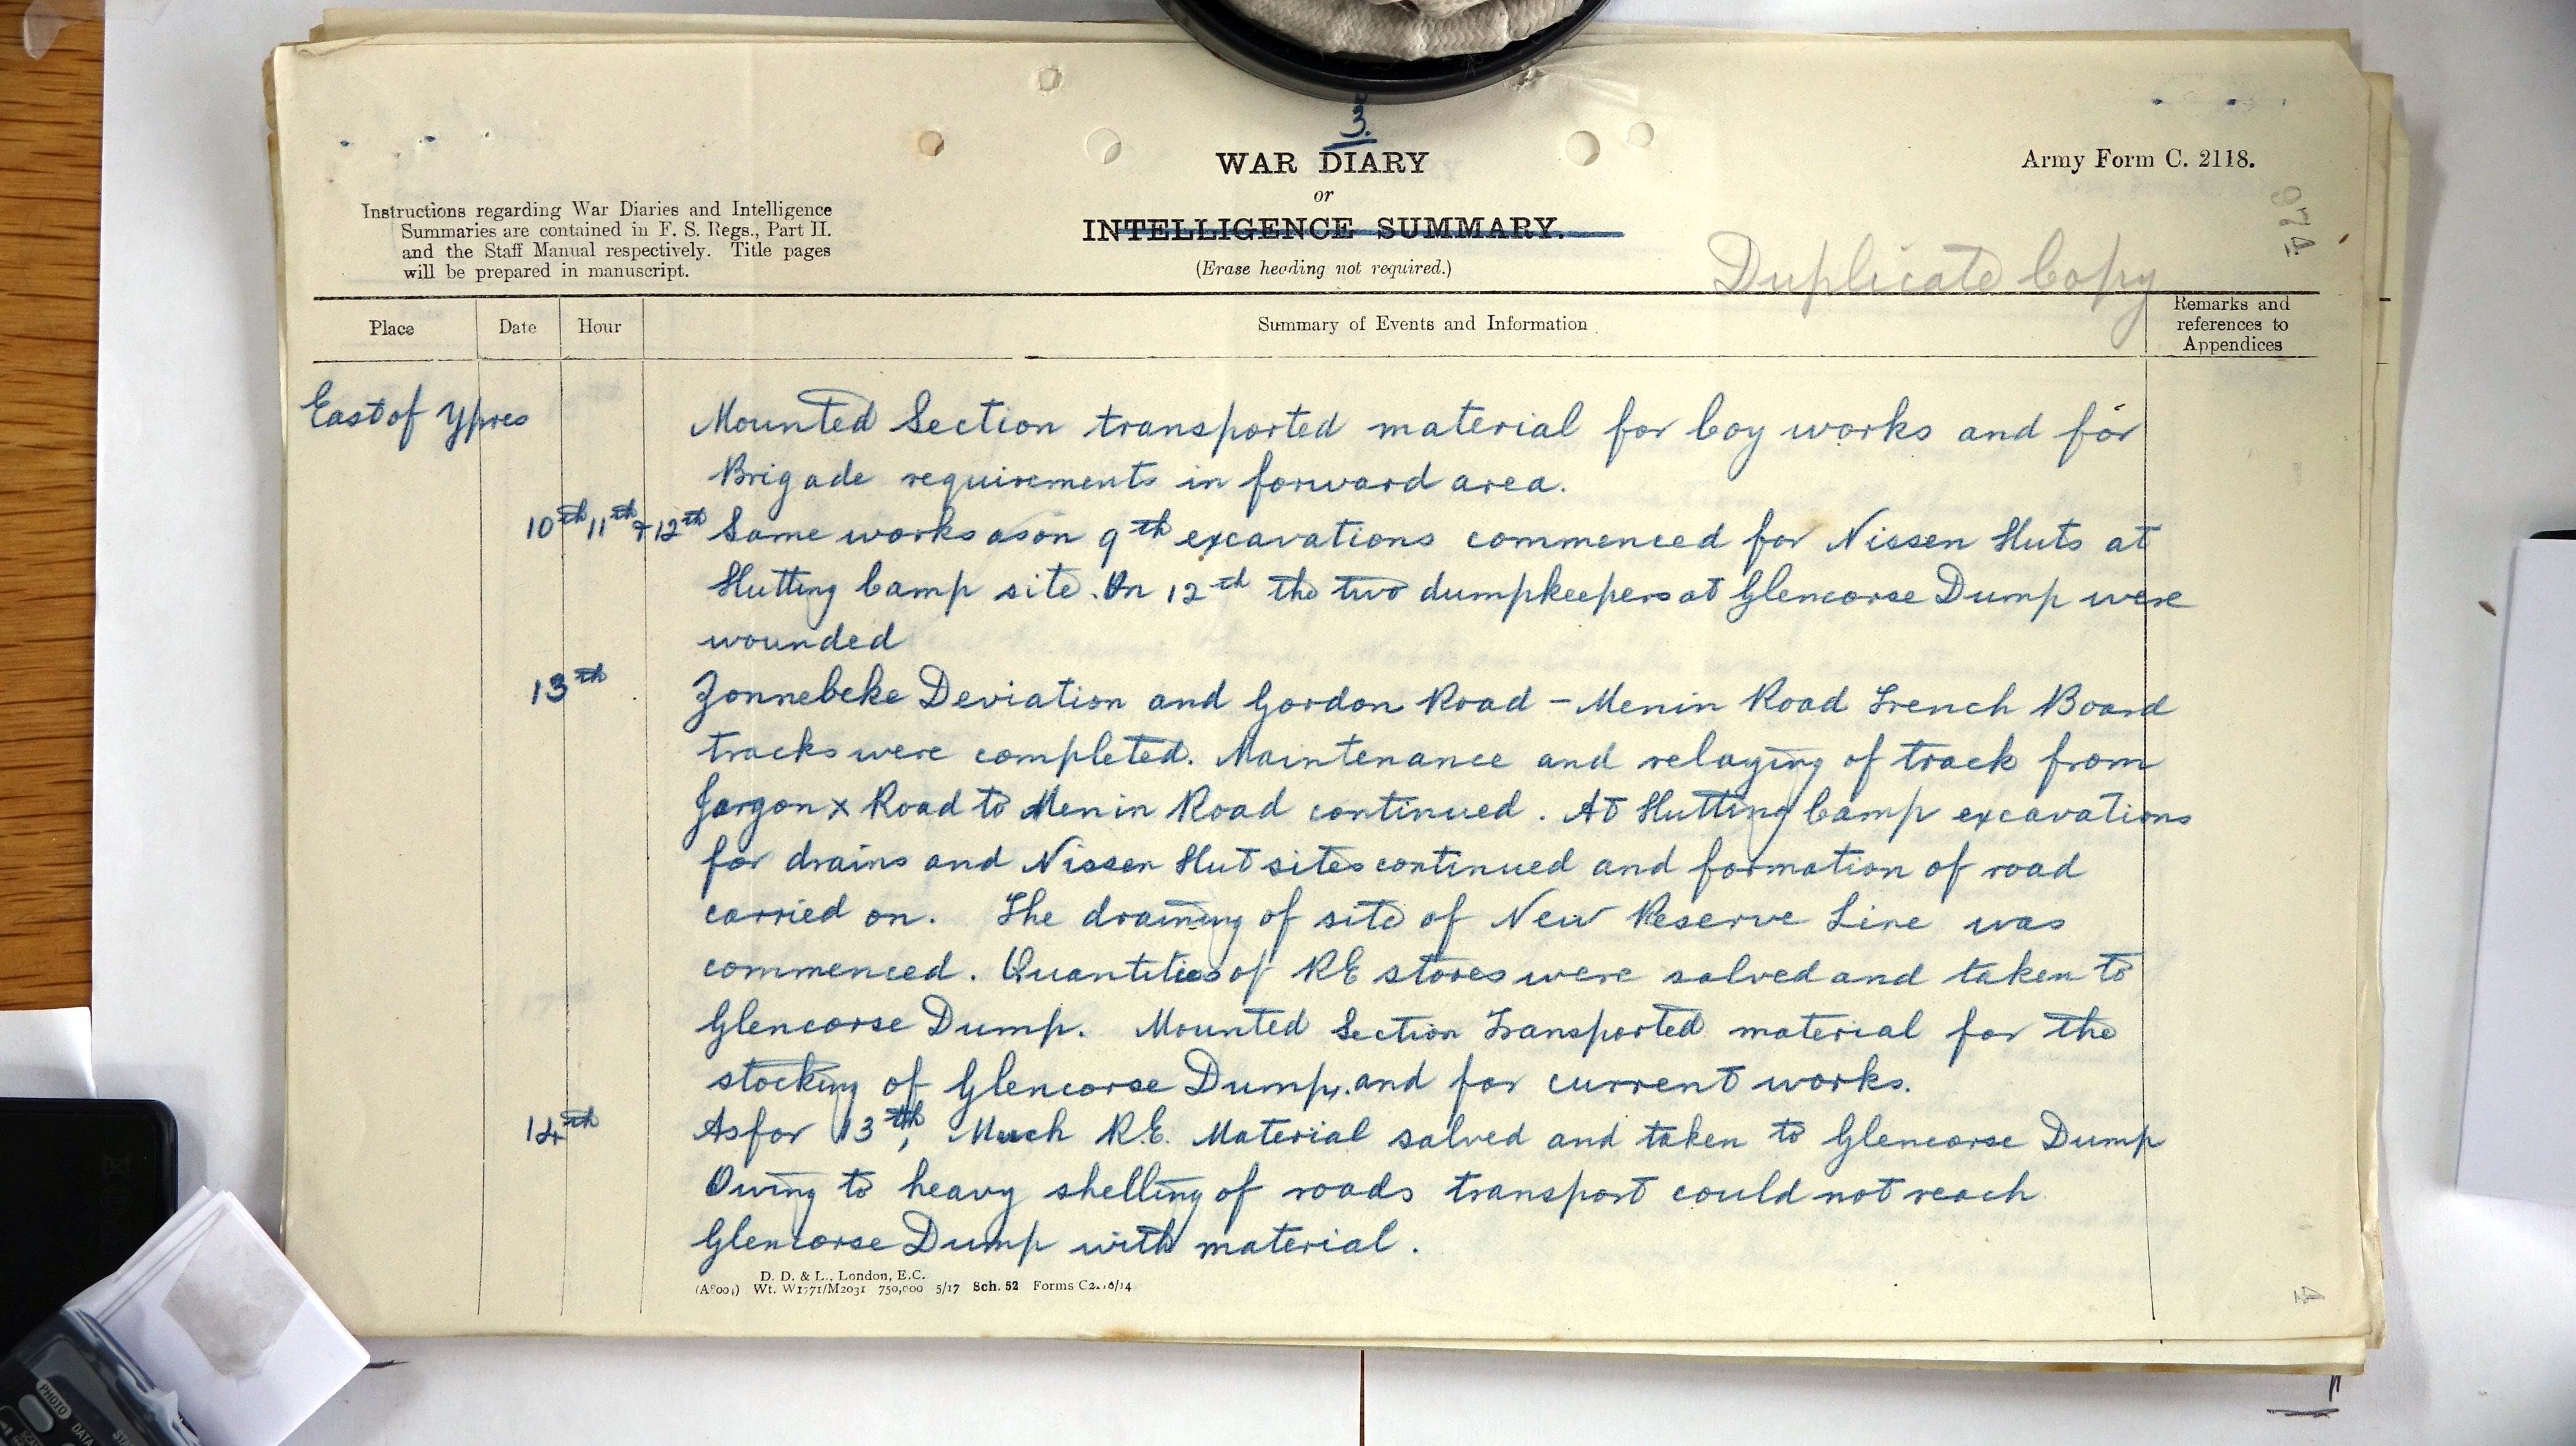 3.
WAR DIARY
or
INTELLIGENCE SUMMARY.
(Erase heading not required.)
Army Form C. 2118.
Instructions regarding War Diaries and Intelligence
Summaries are contained in F. S. Regs., Part II.
and the Staff Manual respectively. Title pages
will be prepared in manuscript.
Duplicate Copy
Place Date Hour Summary of Events and Information Remarks and
references to
Appendices
East of Ypres Mounted Section transported material for Coy works and for
Brigade requirements in forward area.
10th 11th & 12th Same works as on 9th excavations commenced for Nissen Huts at
Hutting Camp site. On 12th the two dumpkeepers at Glencorse Dump were
wounded
13th Zonnebeke Deviation and Gordon Road - Menin Road Trench Board
tracks were completed. Maintenance and relaying of track from
Jargon X Road to Menin Road continued. At Hutting Camp excavations
for drains and Nissen Hut sites continued and formation of road
carried on. The draining of site of New Reserve Line was
commenced. Quantities of RE stores were salved and taken to
Glencorse Dump. Mounted Section Transported material for the
stocking of Glencorse Dump. and for current works.
14th As for 13th, Much R.E. Material salved and taken to Glencorse Dump
Owing to heavy shelling of roads transport could not reach
Glencorse Dump with material.
D. D. & L., London, E.C.
Wt. W1771/M2031 750,000 5/17 Sch. 52 Forms
PHOTO
DATA